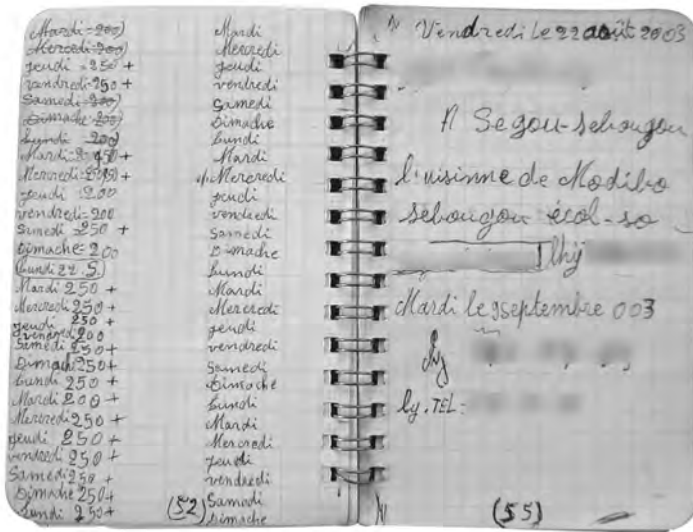 Mardi=200)
Mercedi=200)
jeudi=250+
vendredi=250+
Samedi=200)
Dimache=200)
Lundi=200)
Mardi=250+
Mercredi=250+
jeudi:200
vendredi=200
Samedi=250+
Dimache=200
Lundi 22.S.
Mardi 250+
Mercredi 250+
jeudi 250+
vendredi 200
Samedi 250+
Dimache 250+
Lundi 250+
Mardi 200+
Mercredi 250+
jeudi 250+
vendredi 250+
Samedi 250+
Dimache 250+
Lundi 250+
(52)
Mardi
Mercredi
jeudi
vendredi
Samedi
Dimache
Lundi
Mardi
Mercredi
jeudi
vendredi
Samedi
Dimache
Lundi
Mardi
Mercredi
jeudi
vendredi
Samedi
Dimache
Lundi
Mardi
Mercredi
jeudi
vendredi
Samedi
Dimache
Vendredi Le 22 août 2003
A Segou-sebougou
l'uisinne de Modibo
sebougou écol-so
Mardi le 9septembre 003
TEL:
(55)